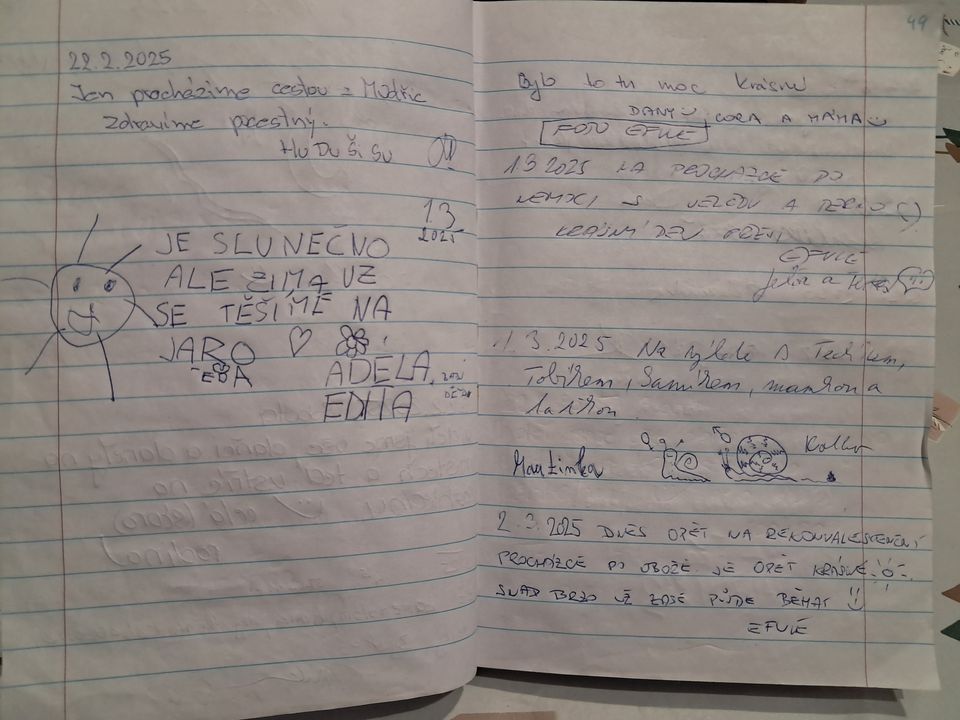 22.2.2025
Jen procházíme cestou z Modřic
Zdravíme pocestný.
HUDUŠISU
1 3
2025
JE SLUNEČNO
ALE ZIMA UZ
SE TĚŠÍME NA
JARO
BÁ
ADÉLA
EDITA
49
Bylo to tu moc krásný
DANY CORA A MÁMA
FOTO EFULE
1 3 2025 NA PROCHAZCE PO
NEMOCI S
KRÁSNÍ DEN
EFULE
a
1.3.2025 Na výletě s
Tobíkem, Samíkem, mamkou a
taťkou
Martinka
2.3.2025 DNES OPĚT NA REKONVALESCENČNÍ
PROCHÁZCE PO OBOŽE JE OPĚT KRÁSNĚ
SNAD BRZO UŽ ZASE PŮJDE BĚHAT
EFULE